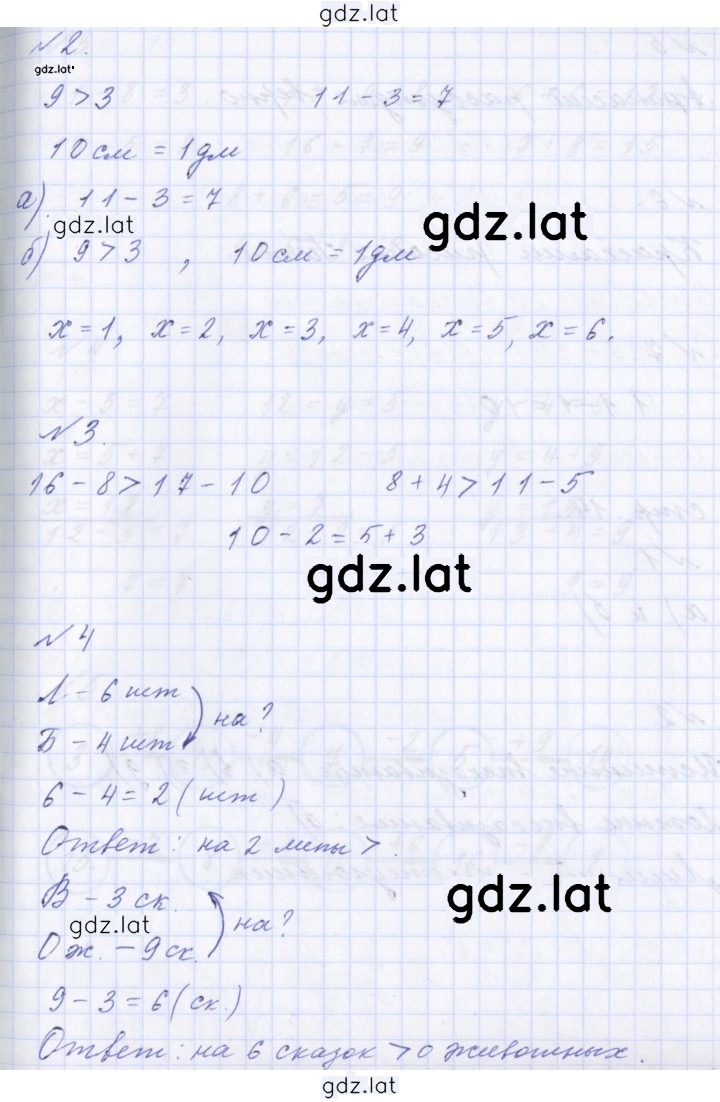 gdz.lat
№2.
gdz.lat
9 > 3 11 - 3 = 7
10 см = 1 дм
а) 11 - 3 = 7
gdz.lat
gdz.lat
б) 9 > 3 , 10 см = 1 дм
x = 1, x = 2, x = 3, x = 4, x = 5, x = 6.
№3.
16 - 8 > 17 - 10 8 + 4 > 11 - 5
10 - 2 = 5 + 3
gdz.lat
№4
Л - 6 шт
на?
Б - 4 шт
6 - 4 = 2 (шт)
Ответ: на 2 липы >.
В - 3 ск.
gdz.lat
gdz.lat
на?
О ж. - 9 ск.
9 - 3 = 6 (ск.)
Ответ: на 6 сказок > о животных.
gdz.lat